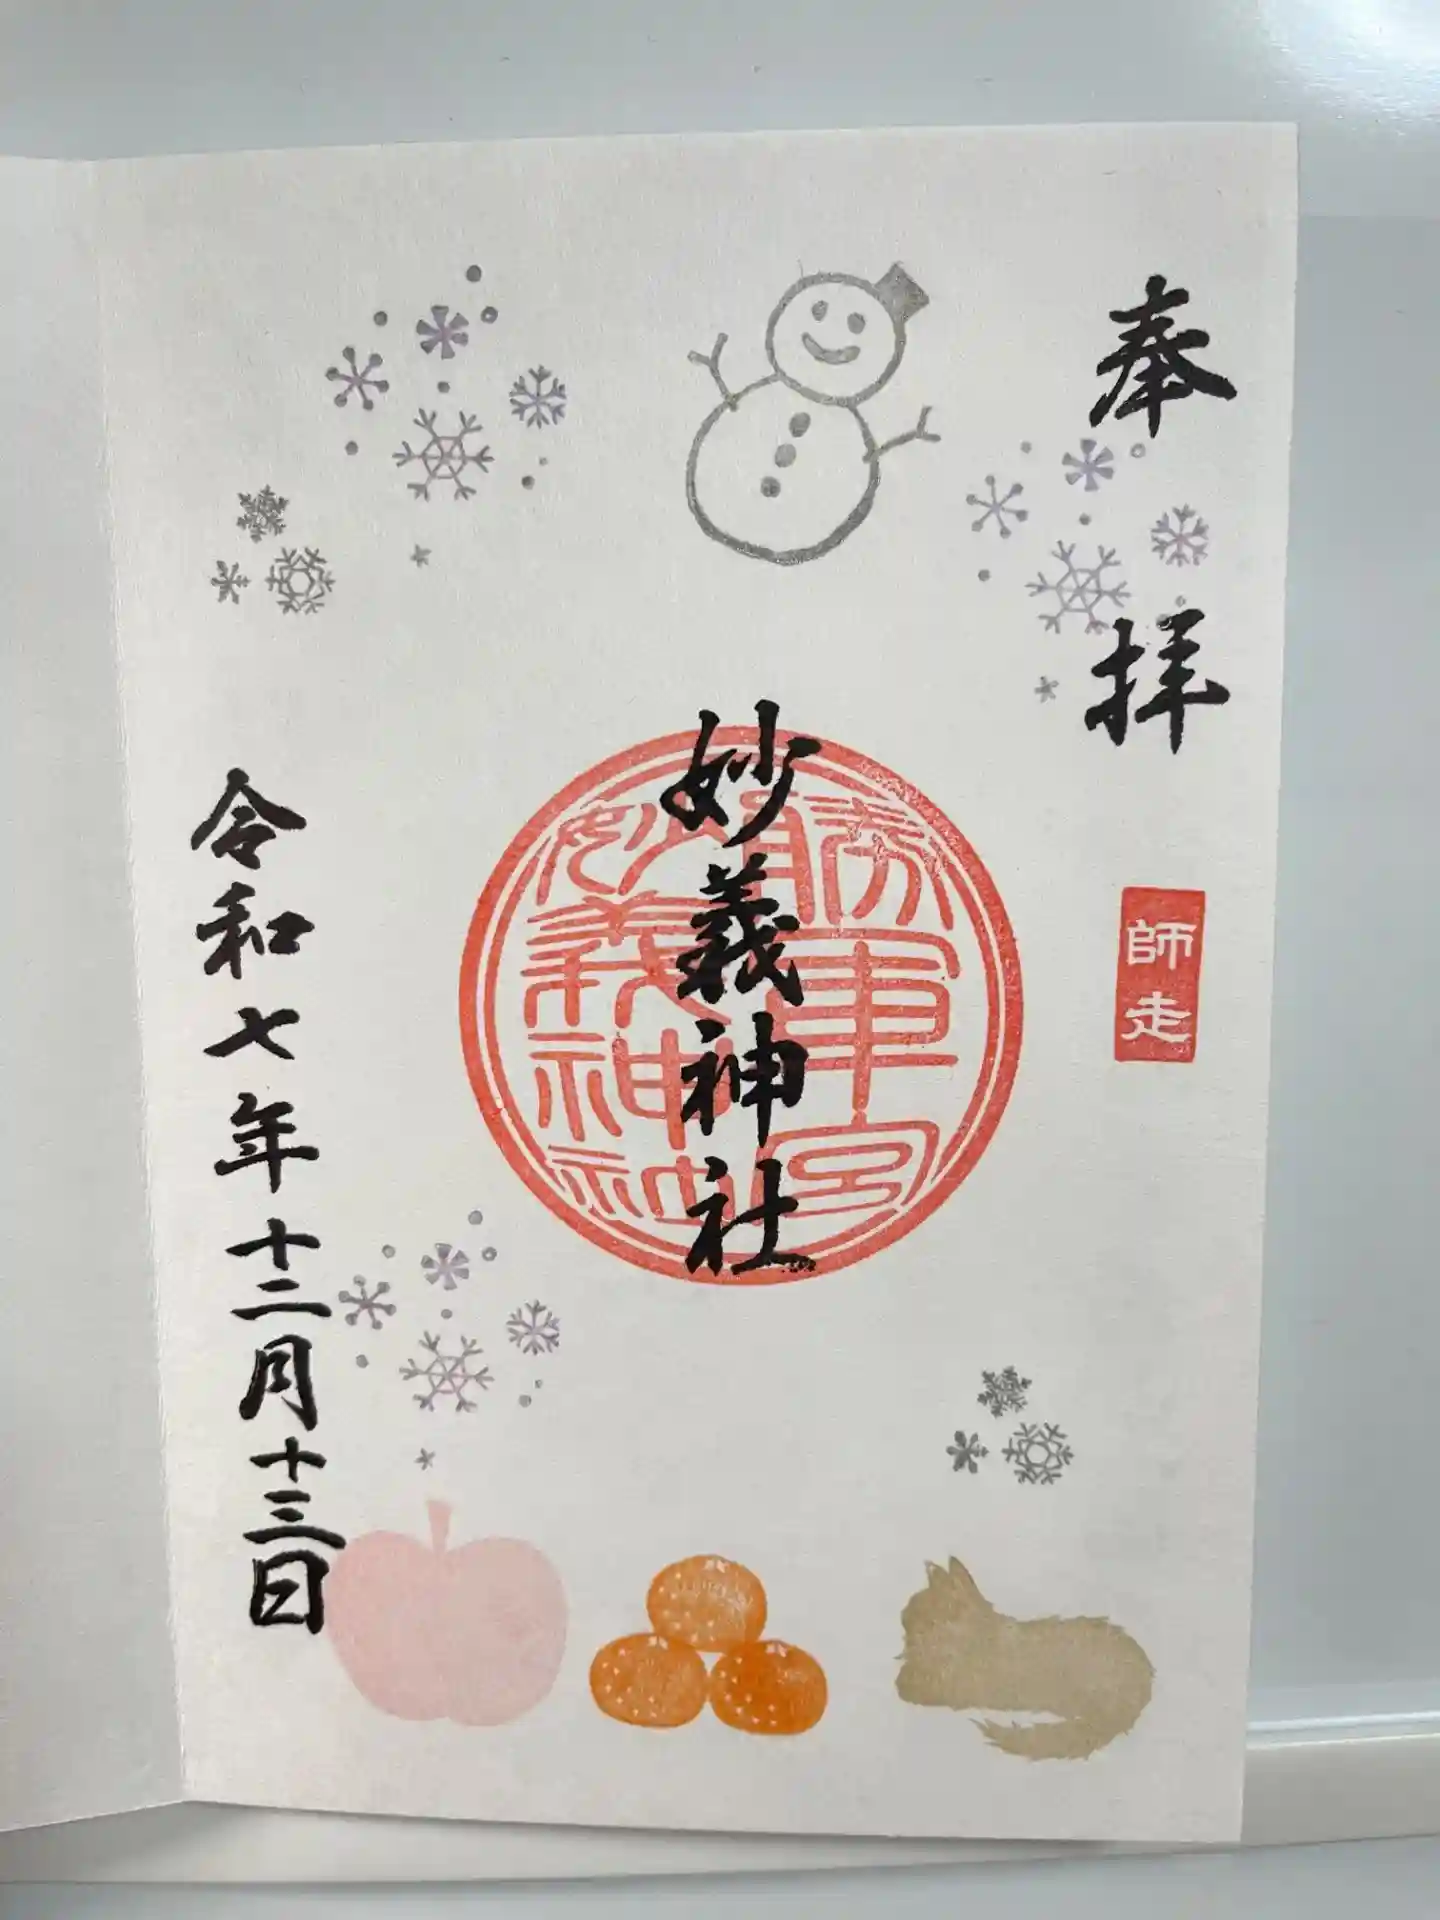 奉拝
師走
妙義神社
勝軍宮
妙義神社
令和七年十二月十三日